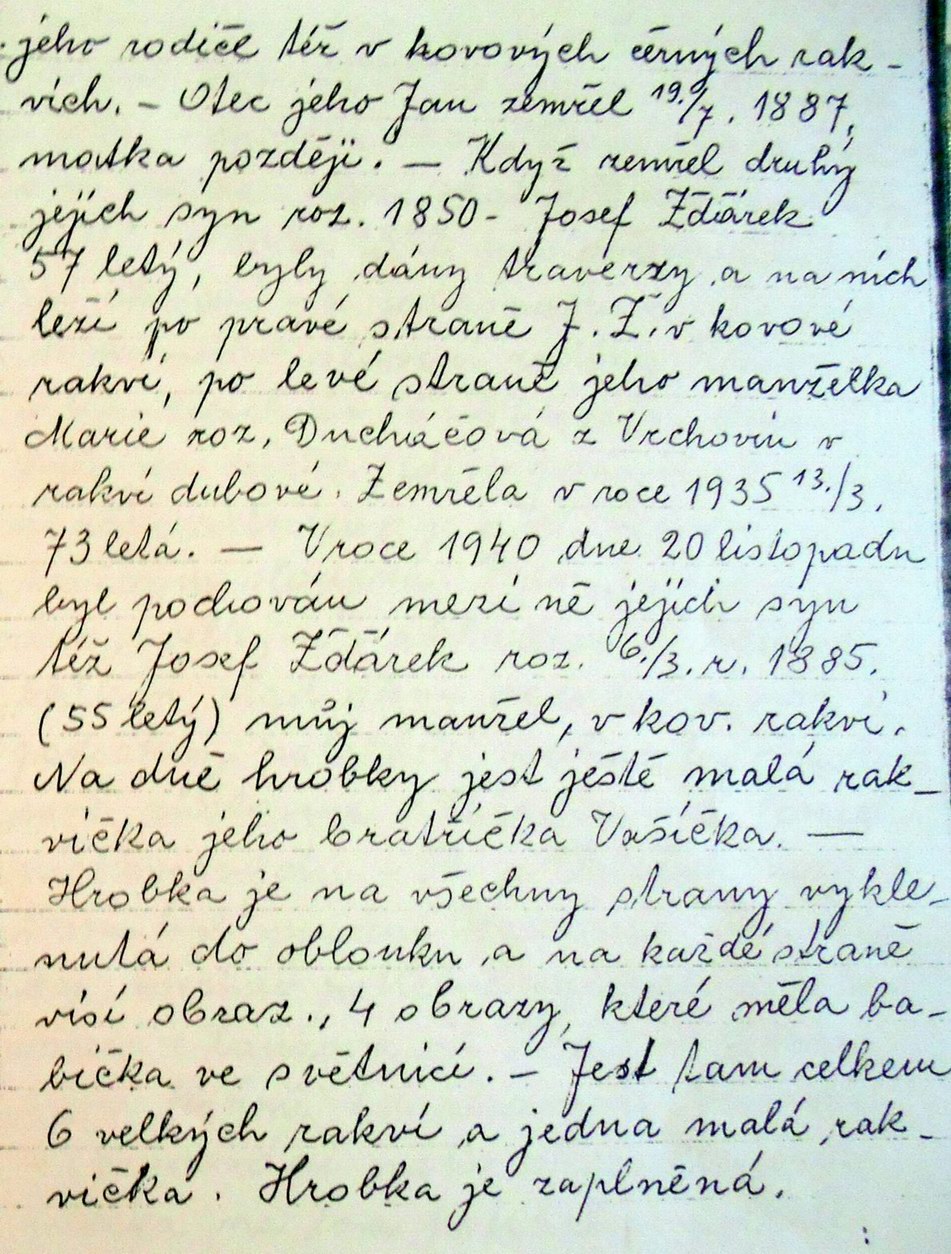 jeho rodiče též v kovových černých rak-
vích. – Otec jeho Jan zemřel 19./7. 1887,
matka později. – Když zemřel druhý
jejich syn roz. 1850 - Josef Žďárek
57 letý, byly dány traverzy a na nich
leží po pravé straně J. Ž. v kovové
rakvi, po levé straně jeho manželka
Marie roz. Ducháčová z Vrchovin v
rakvi dubové. Zemřela v roce 1935 13./3.
73 letá. — V roce 1940 dne 20 listopadu
byl pochován mezi ně jejich syn
též Josef Žďárek roz. 6./3. r. 1885.
(55 letý) můj manžel, v kov. rakvi.
Na dně hrobky jest ještě malá rak-
vička jeho bratříčka Vašíčka. —
Hrobka je na všechny strany vykle-
nutá do oblouku a na každé straně
visí obraz., 4 obrazy, které měla ba-
bička ve světnici. – Jest tam celkem
6 velkých rakví a jedna malá rak-
vička. Hrobka je zaplněná.